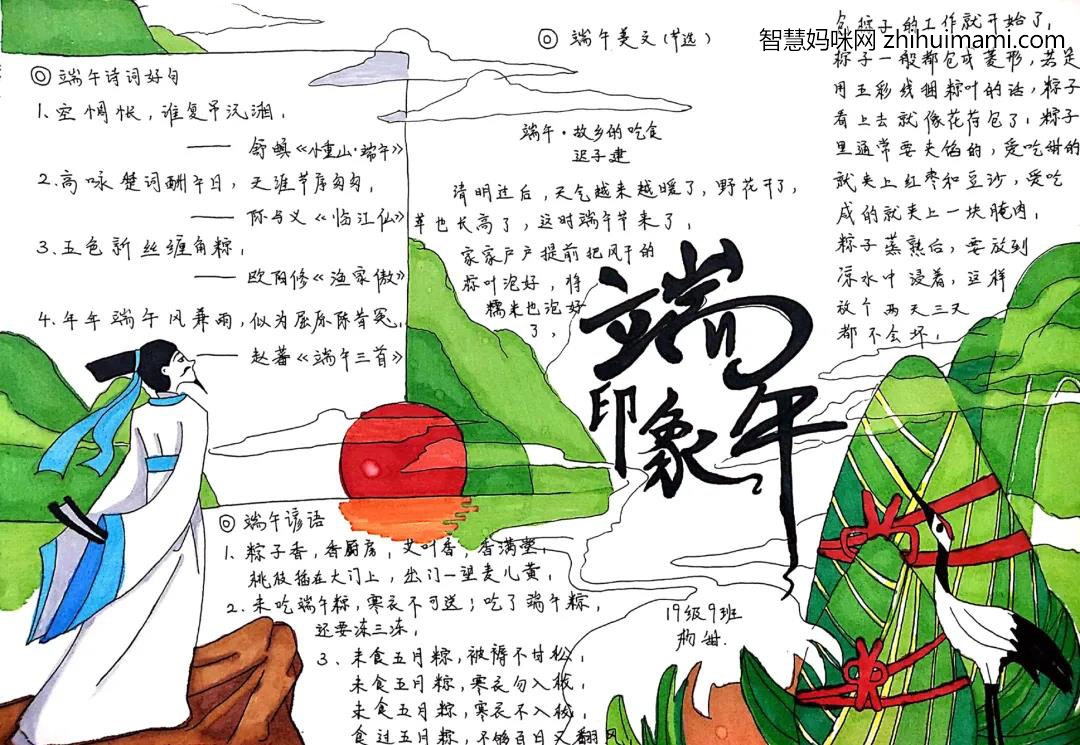 智慧妈咪网 zhihuimami.com
◎ 端午诗词好句
1、空惆怅，谁复吊沅湘。
—— 舒頔《小重山·端午》
2、高咏楚词酬午日，天涯节序匆匆。
—— 陈与义《临江仙》
3、五色新丝缠角粽。
—— 欧阳修《渔家傲》
4、年年端午风兼雨，似为屈原陈昔冤。
—— 赵蕃《端午三首》
◎ 端午美文（节选）
端午·故乡的吃食
迟子建
清明过后，天气越来越暖了，野花开了，
草也长高了，这时端午节来了。
家家户户提前把风干的
粽叶泡好，将
糯米也泡好
了，
包粽子的工作就开始了，
粽子一般都包成菱形，若是
用五彩线捆粽叶的话，粽子
看上去就像花荷包了；粽子
里通常要夹馅的，爱吃甜的
就夹上红枣和豆沙，爱吃
咸的就夹上一块腌肉。
粽子蒸熟后，要放到
凉水中浸着，这样
放个两天三天
都不会坏。
端午
印象
◎ 端午谚语
1、粽子香，香厨房，艾叶香，香满堂，
桃枝插在大门上，出门一望麦儿黄，
2、未吃端午粽，寒衣不可送；吃了端午粽，
还要冻三冻，
3、未食五月粽，被褥不甘松，
未食五月粽，寒衣勿入栊，
未食五月粽，寒衣不入栊，
食过五月粽，不够百日又翻风，
19级9班